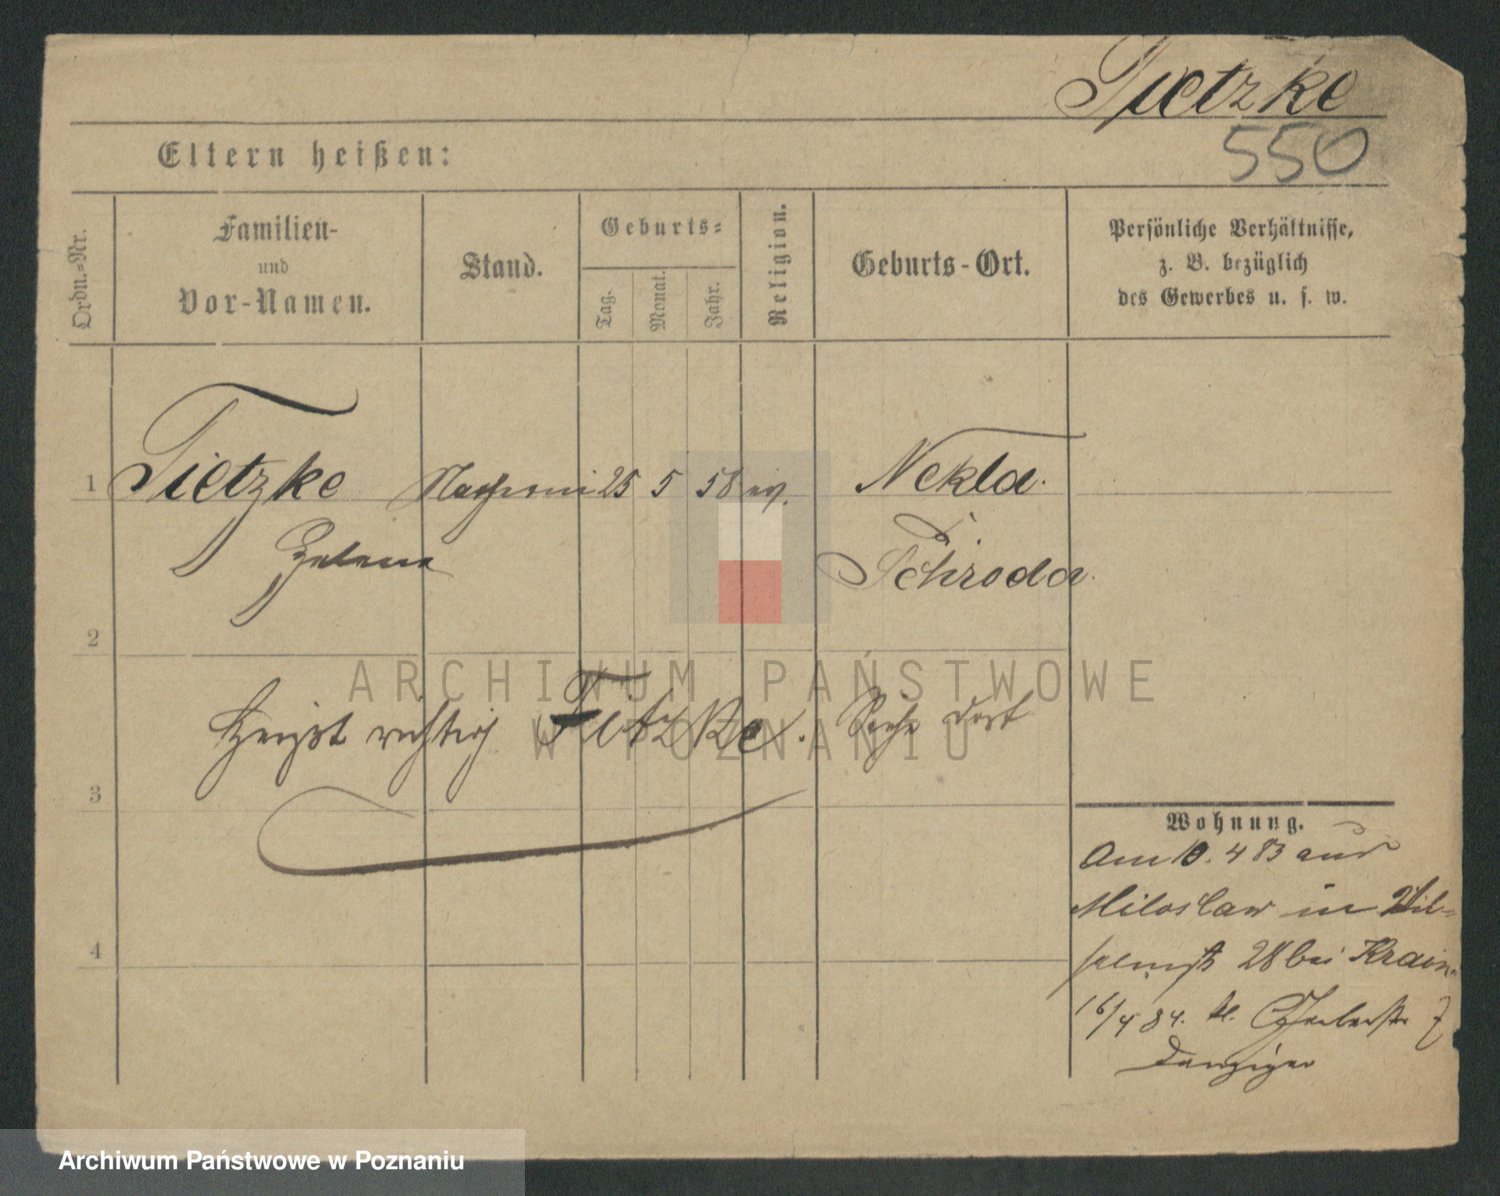 Tietzke
550
Eltern heißen:
Ordn.-Nr.
Familien-
und
Vor-Namen.
Stand.
Geburts-
Tag.
Monat.
Jahr.
Religion.
Geburts-Ort.
Persönliche Verhältnisse,
z. B. bezüglich
des Gewerbes u. s. w.
1 Tietzke 25 5 58 ev. Nekla.
Helene Schroda.
2
heißt richtig Fitzke. Siehe dort
3
Wohnung.
Am 10. 4 83 aus
Miloslaw in Wil-
helmst 28 bei Krain.
16/4 84. kl. Gerberstr 7
Danziger
4
ARCHIWUM PAŃSTWOWE
W POZNANIU
Archiwum Państwowe w Poznaniu